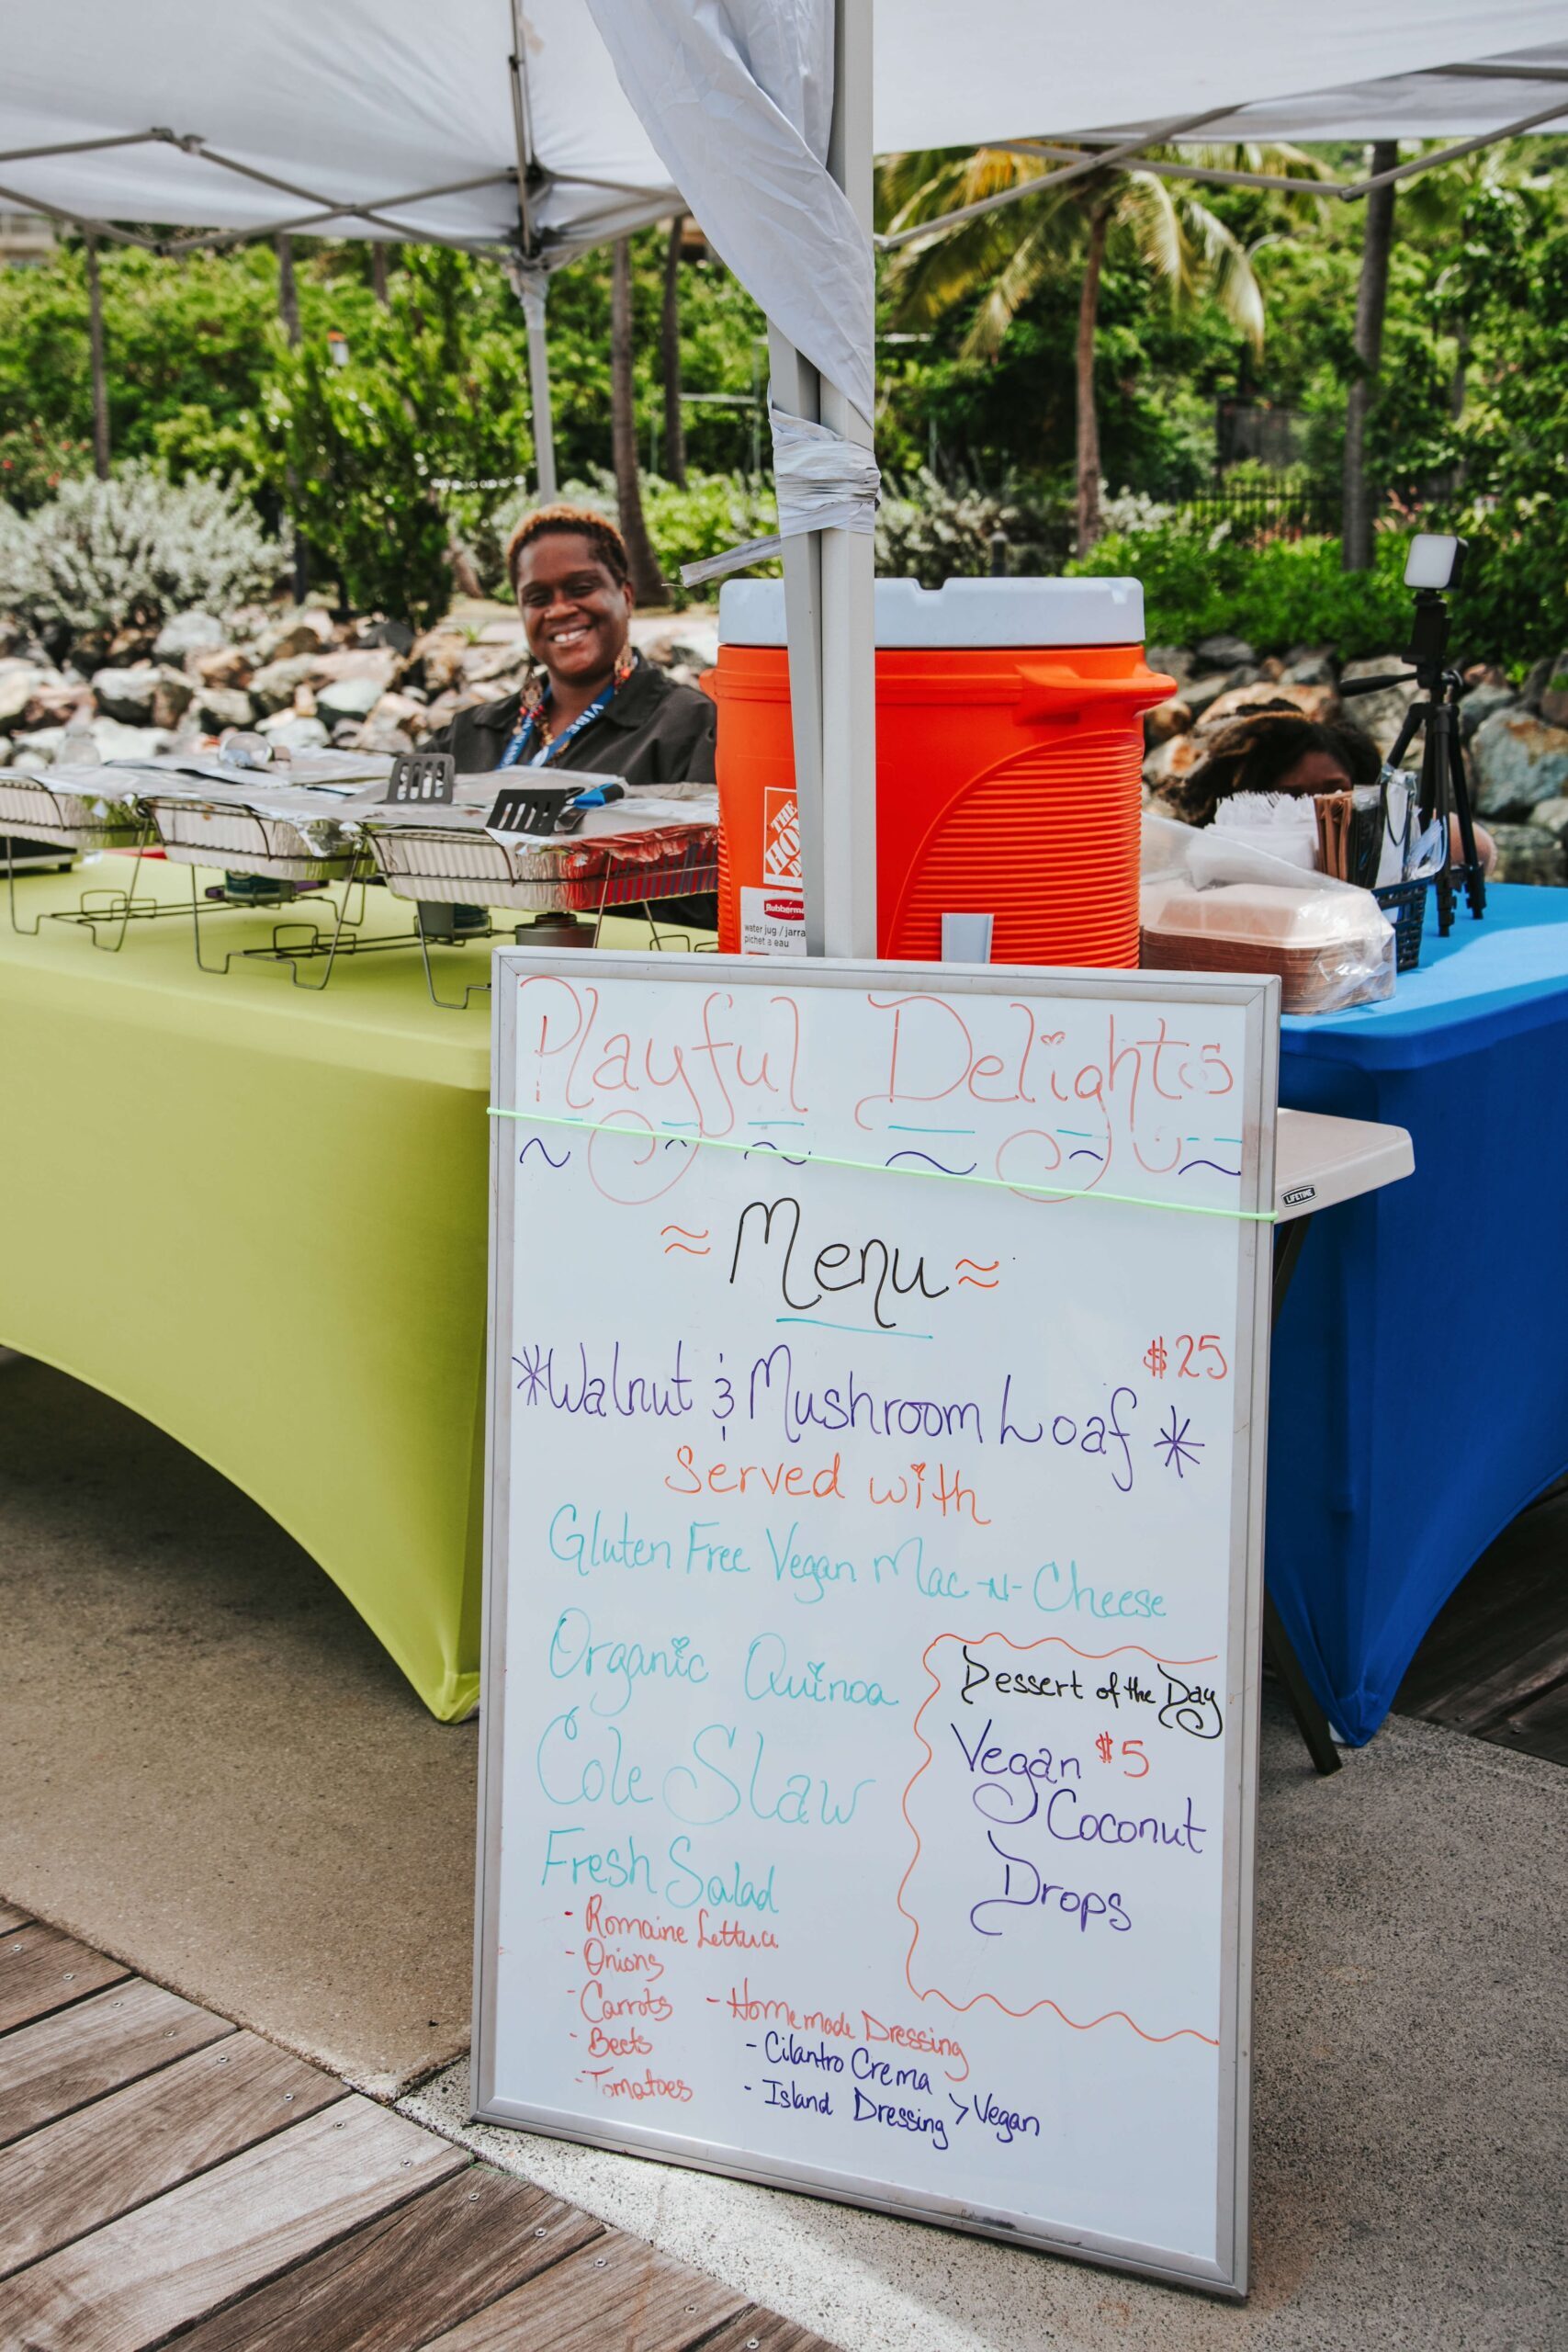 VIBE
THE
HO
Rubberma
water jug / jarra
pichet a eau
LIFETIME
Playful Delights
Menu
$25
*Walnut & Mushroom Loaf *
Served with
Gluten Free Vegan Mac-N-Cheese
Organic Quinoa
Cole Slaw
Fresh Salad
- Romaine Lettuce
- Onions
- Carrots
- Beets
- Tomatoes
- Homemade Dressing
- Cilantro Crema
- Island Dressing > Vegan
Dessert of the Day
Vegan $5
Coconut
Drops